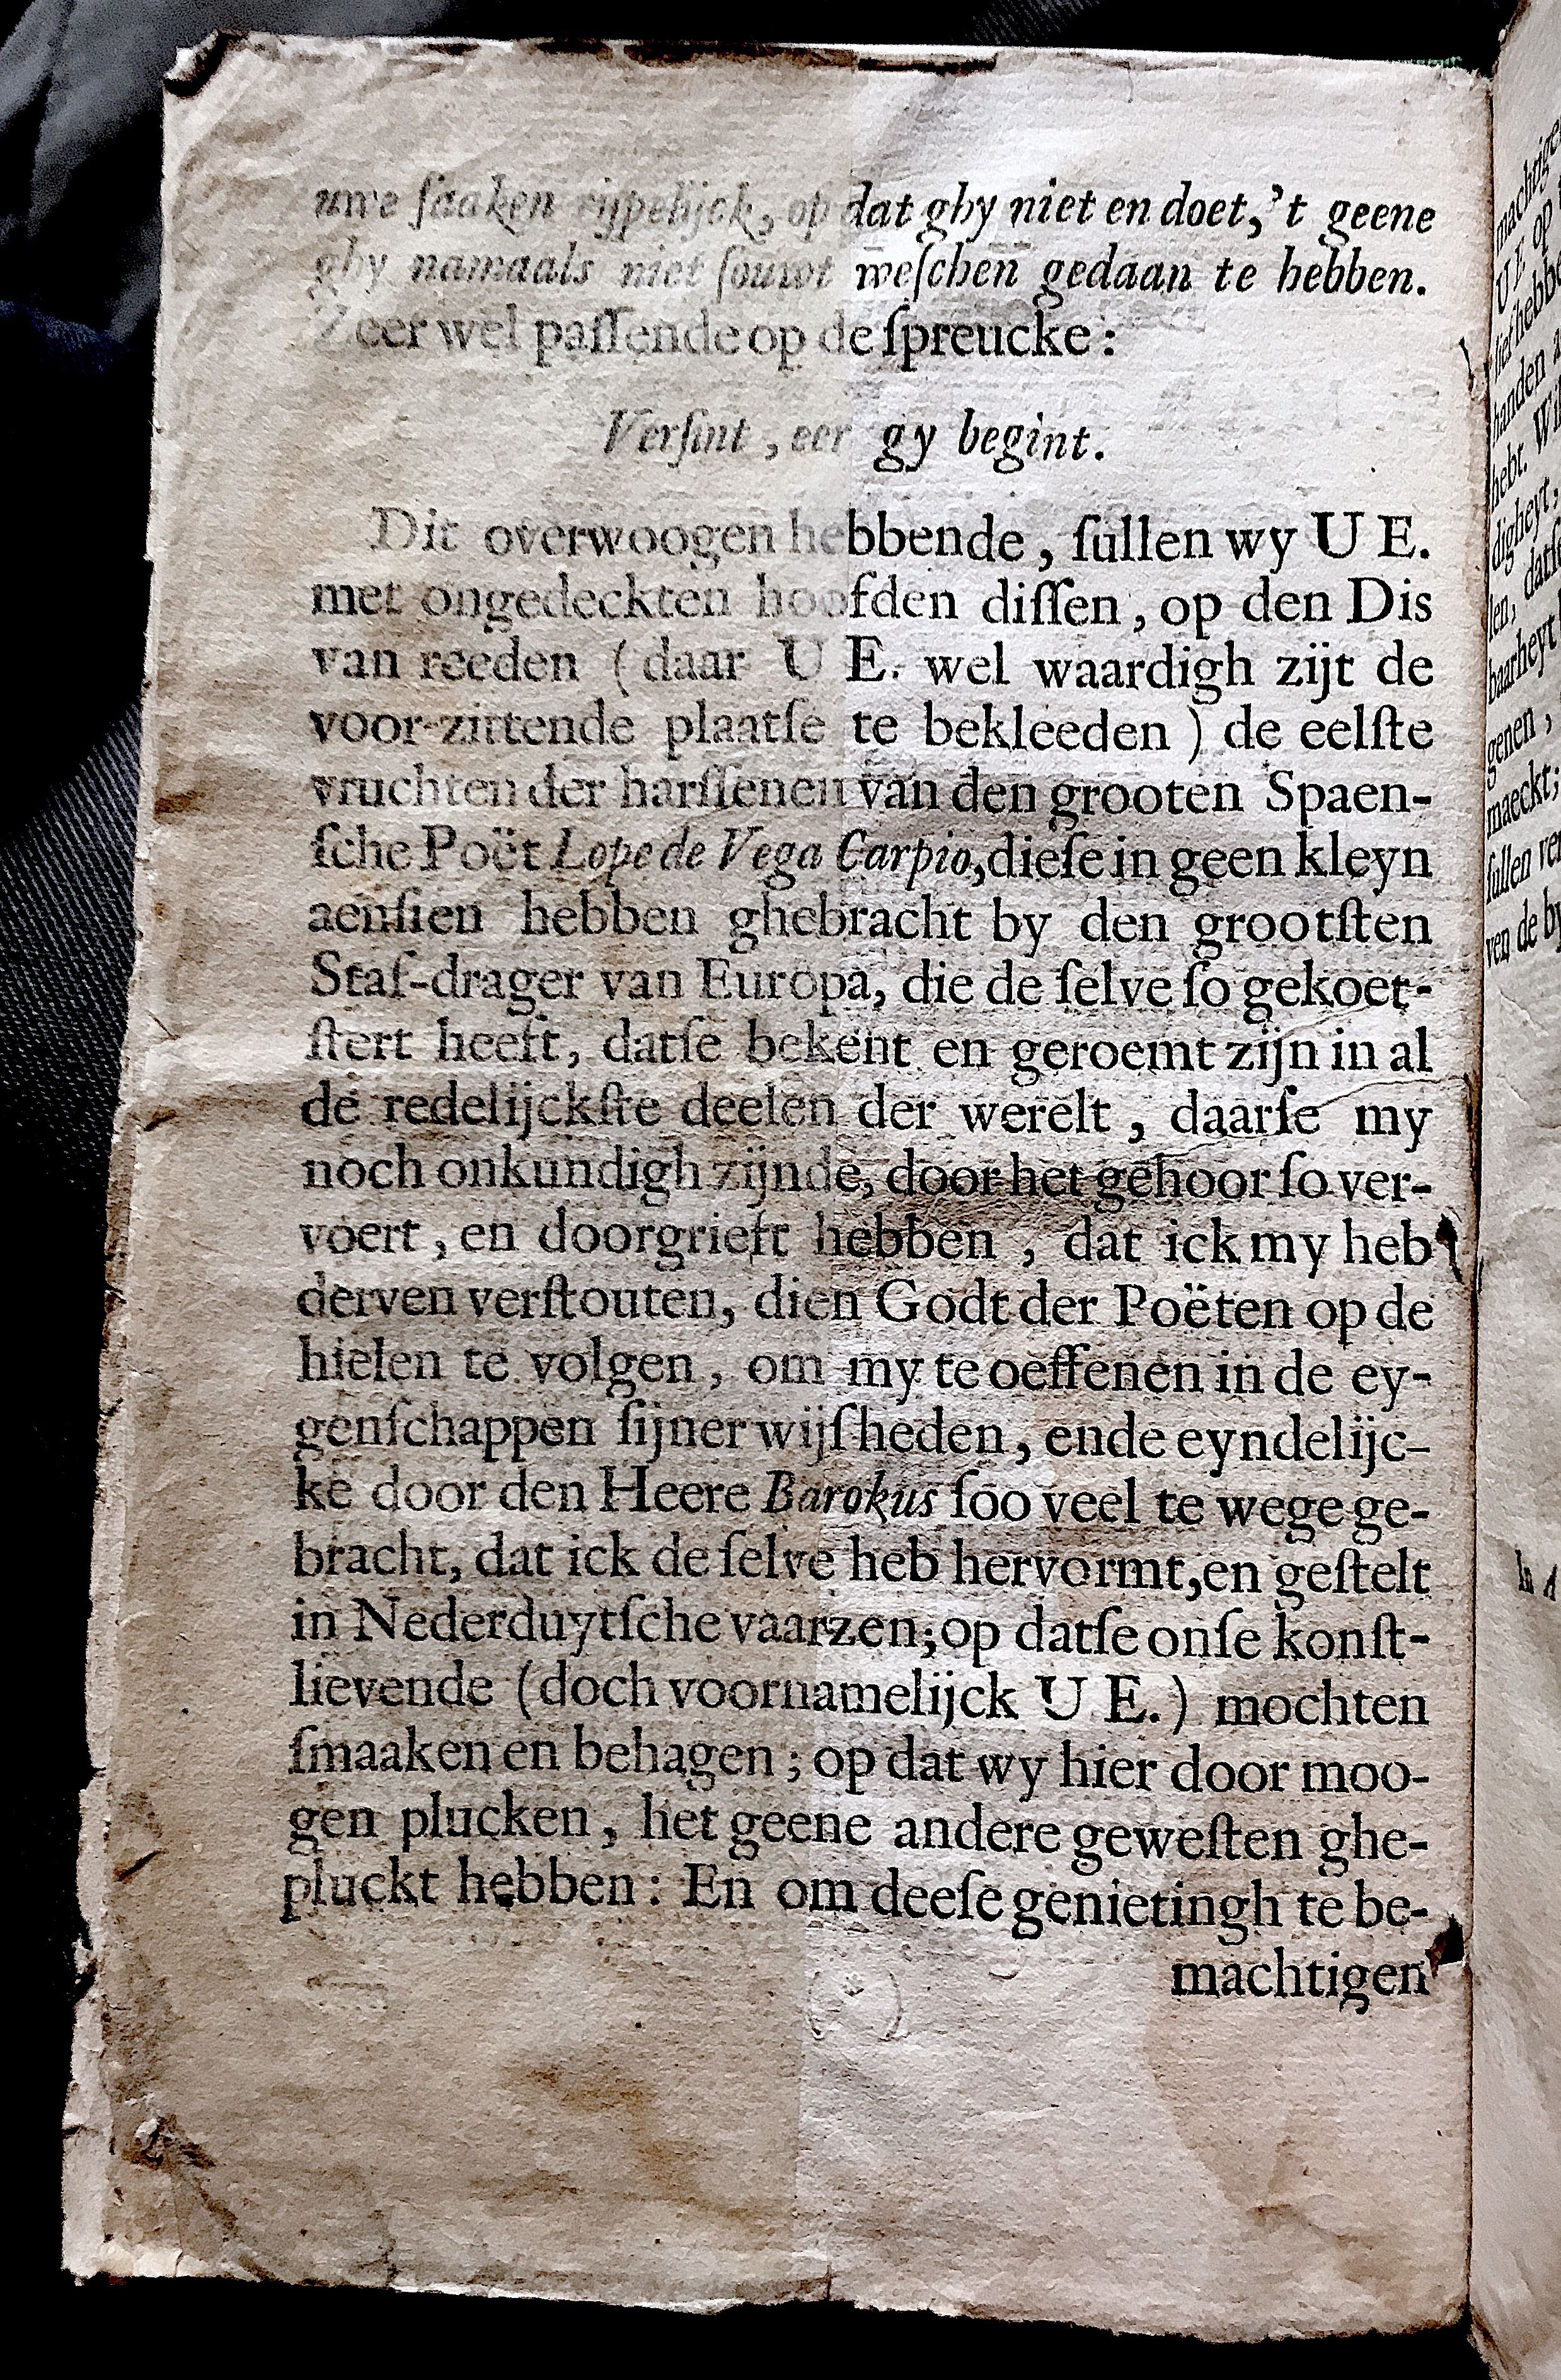 uwe ſaaken rijpelijck, op dat ghy niet en doet, 't geene
ghy namaals niet ſouwt weſchen gedaan te hebben.
Zeer wel paſſende op de ſpreucke:
Verſint, eer gy begint.
Dit overwoogen hebbende, ſullen wy U E.
met ongedeckten hoofden diſſen, op den Dis
van reeden (daar U E. wel waardigh zijt de
voor-zittende plaatſe te bekleeden) de eelſte
vruchten der harſſenen van den grooten Spaen-
ſche Poët Lope de Vega Carpio, dieſe in geen kleyn
aenſien hebben ghebracht by den grootſten
Staf-drager van Europa, die de ſelve ſo gekoet-
ſtert heeft, datſe bekent en geroemt zijn in al
de redelijckſte deelen der werelt, daarſe my
noch onkundigh zijnde, door het gehoor ſo ver-
voert, en doorgrieft hebben, dat ick my heb
derven verſtouten, dien Godt der Poëten op de
hielen te volgen, om my te oeffenen in de ey-
genſchappen ſijner wijſheden, ende eyndelijc-
ke door den Heere Barokus ſoo veel te wege ge-
bracht, dat ick de ſelve heb hervormt, en geſtelt
in Nederduytſche vaarzen; op datſe onſe konſt-
lievende (doch voornamelijck U E.) mochten
ſmaaken en behagen; op dat wy hier door moo-
gen plucken, het geene andere geweſten ghe-
pluckt hebben: En om deeſe genietingh te be-
machtigen